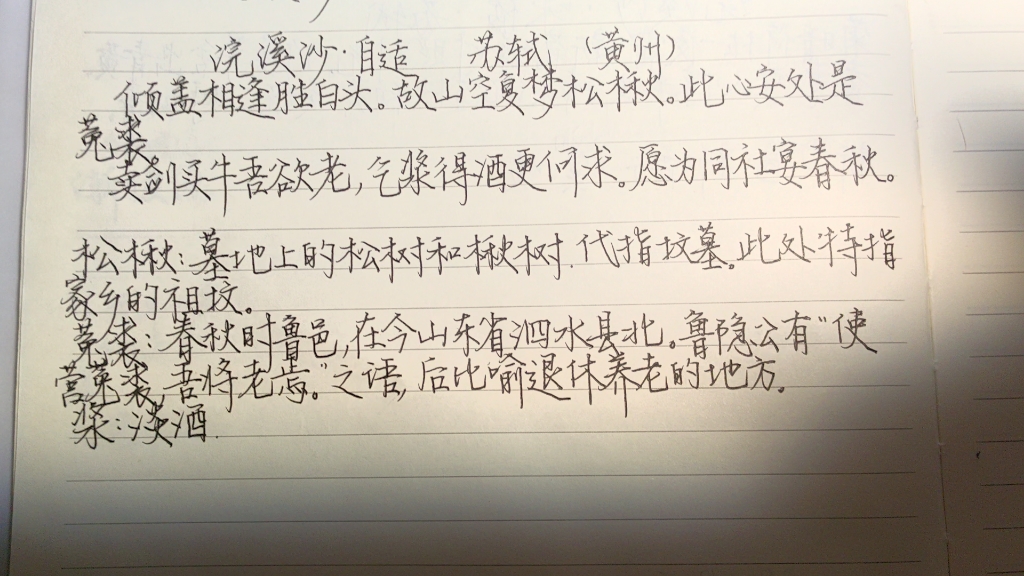 浣溪沙·自适 苏轼 (黄州)
倾盖相逢胜白头。故山空复梦松楸。此心安处是
菟裘。
卖剑买牛吾欲老,乞浆得酒更何求。愿为同社宴春秋。
松楸:墓地上的松树和楸树.代指坟墓。此处特指
家乡的祖坟。
菟裘:春秋时鲁邑,在今山东省泗水县北。鲁隐公有“使
营菟裘,吾将老焉。”之语,后比喻退休养老的地方。
浆:淡酒.